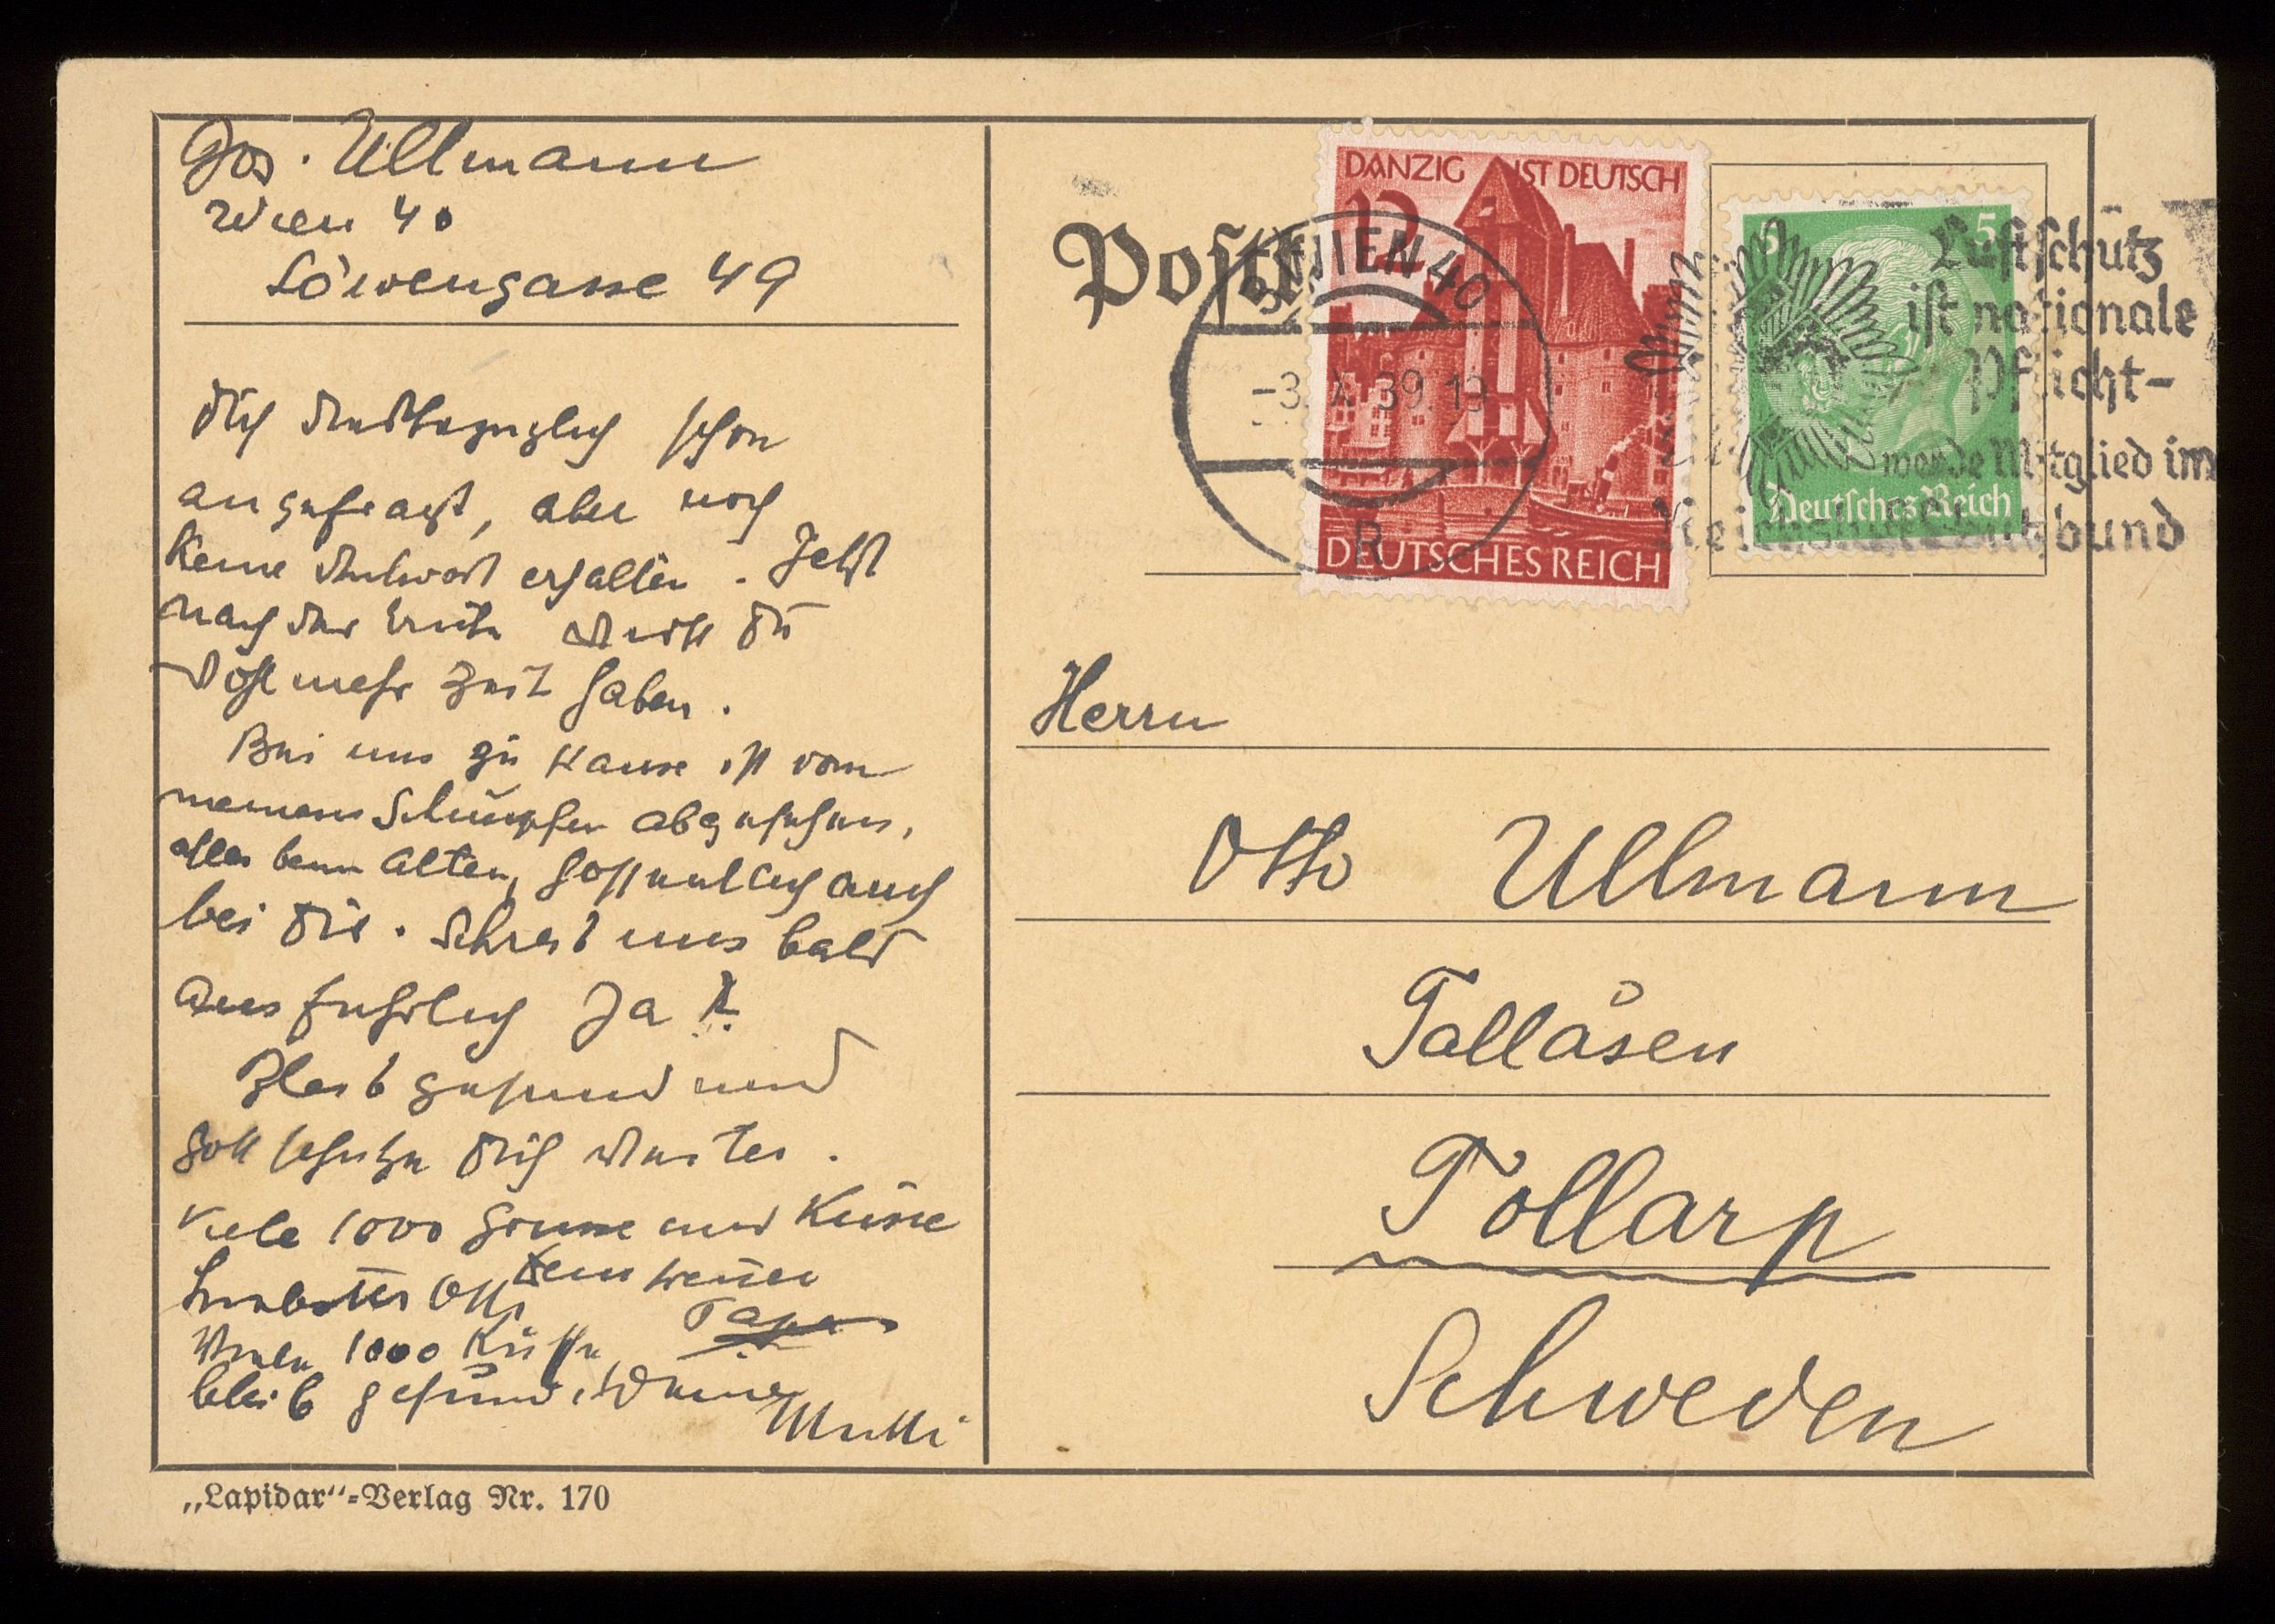 Jos. Ullmann
Wien 40
Löwengasse 49
Dich diesbezüglich schon
angefragt, aber noch
keine Antwort erhalten. Jetzt
nach der Ernte wirst Du
wohl mehr Zeit haben.
Bei uns zu Hause ist von
meinem Schnupfen abgesehen,
alles beim Alten, hoffentlich auch
bei Dir. Schreib uns bald
ausführlich Ja
Bleib gesund und
Gott schütze Dich weiter.
Viele 1000 Grüsse und Küsse
Dein treuer
Papa
Otto
Viele 1000 Küsse,
bleib gesund, Deine
Mutti
„Lapidar“-Verlag Nr. 170
Postk
DANZIG IST DEUTSCH
12
DEUTSCHES REICH
WIEN 40
-3. X. 39. 19
R
5 5
Deutsches Reich
Luftschutz
ist nationale
Pflicht-
werde Mitglied im
Reichsluftschutzbund
Herrn
Otto Ullmann
Tallåsen
Tollarp
Schweden